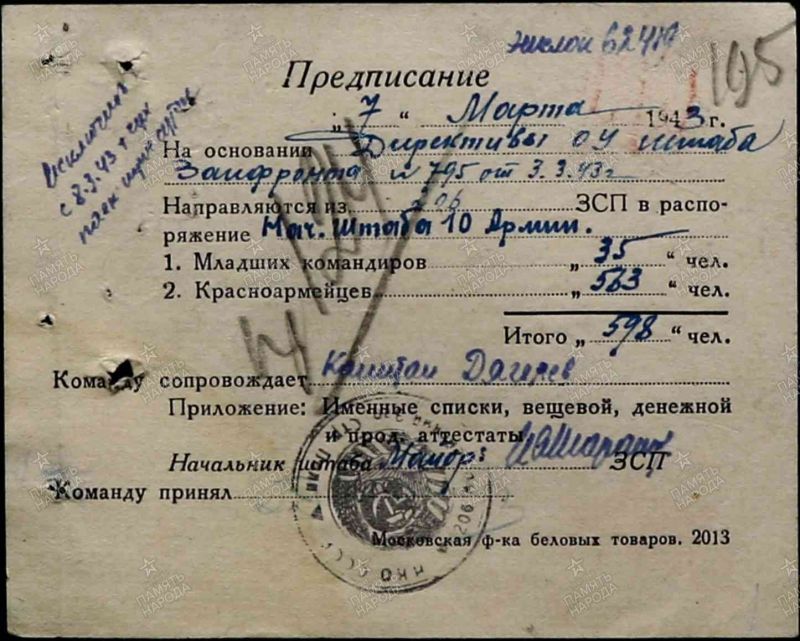 эшелон 62419
195
Исключить
с 8.3.43 г
Предписание
„7" Марта 1943 г.
На основании Директивы ОУ штаба
Запфронта № 795 от 3.3.43г
Направляются из 206 ЗСП в распо-
ряжение Нач. Штаба 10 Армии.
1. Младших командиров „ 35 " чел.
2. Красноармейцев „ 563 " чел.
Итого „ 598 " чел.
Команду сопровождает Капитан
Приложение: Именные списки, вещевой, денежной
и прод. аттестаты
Начальник штаба Майор: ЗСП
Команду принял
НКО СССР
206
Московская ф-ка беловых товаров. 2013
ПАМЯТЬ НАРОДА